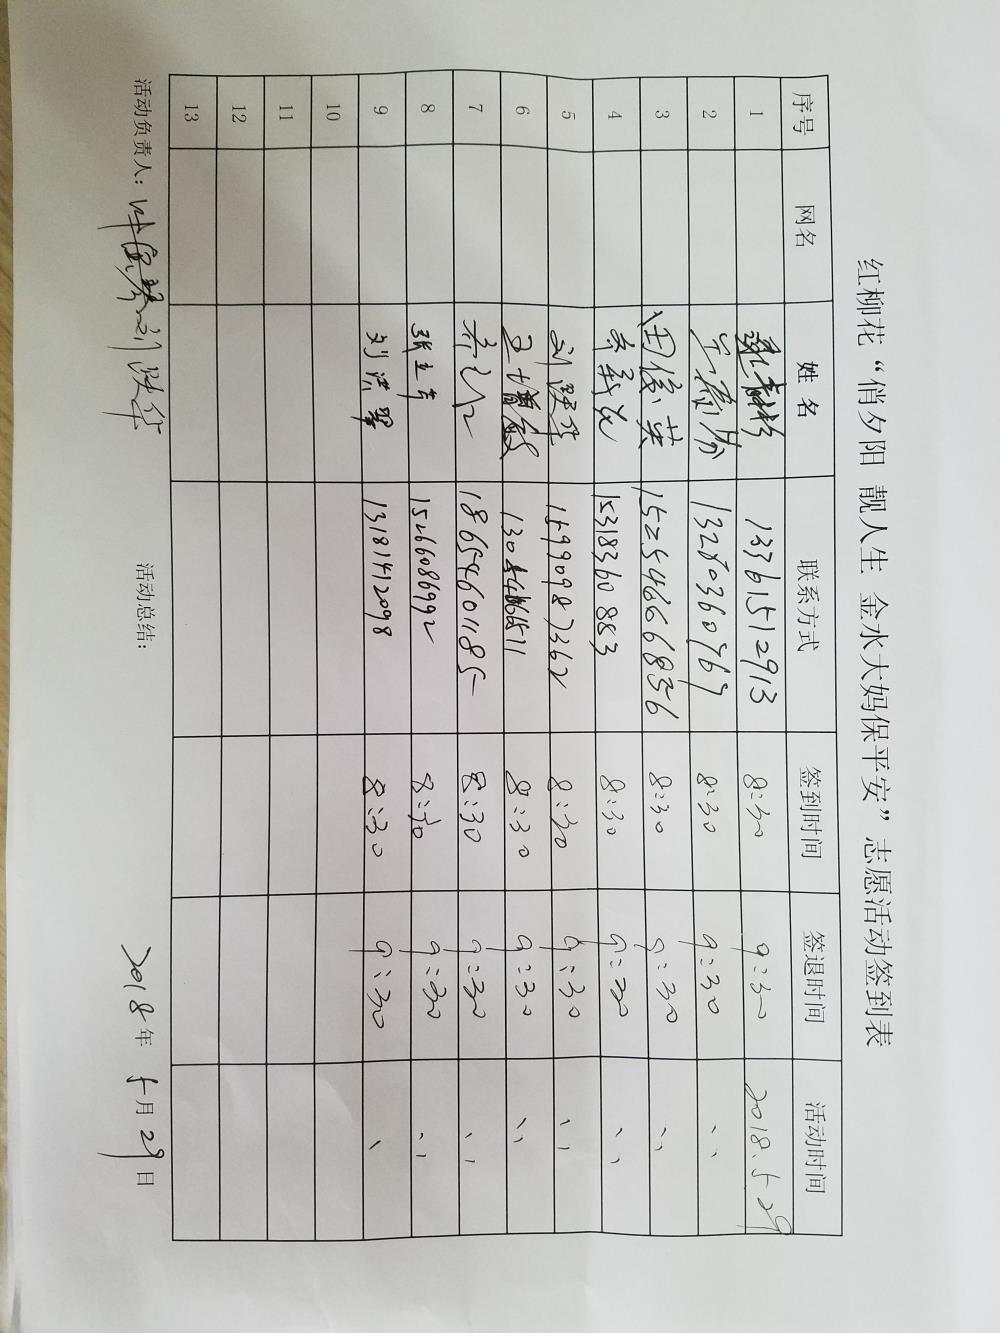 红柳花“俏夕阳 靓人生 金水大妈保平安”志愿活动签到表
序号 网名 姓名 联系方式 签到时间 签退时间 活动时间
1 13361512913 8:30 9:30 2018.5.29
2 13280360769 8:30 9:30 、、
3 田俊英 15254666836 8:30 9:30 、、
4 15318360883 8:30 9:30 、、
5 刘跃华 15990987362 8:30 9:30 、、
6 王增敏 8:30 9:30 、、
7 18654601185 8:30 9:30 、、
8 张立考 15266086992 8:30 9:30 、、
9 刘洪翠 13181412098 8:30 9:30 、
10
11
12
13
活动负责人: 刘跃华 活动总结: 2018年5月29日